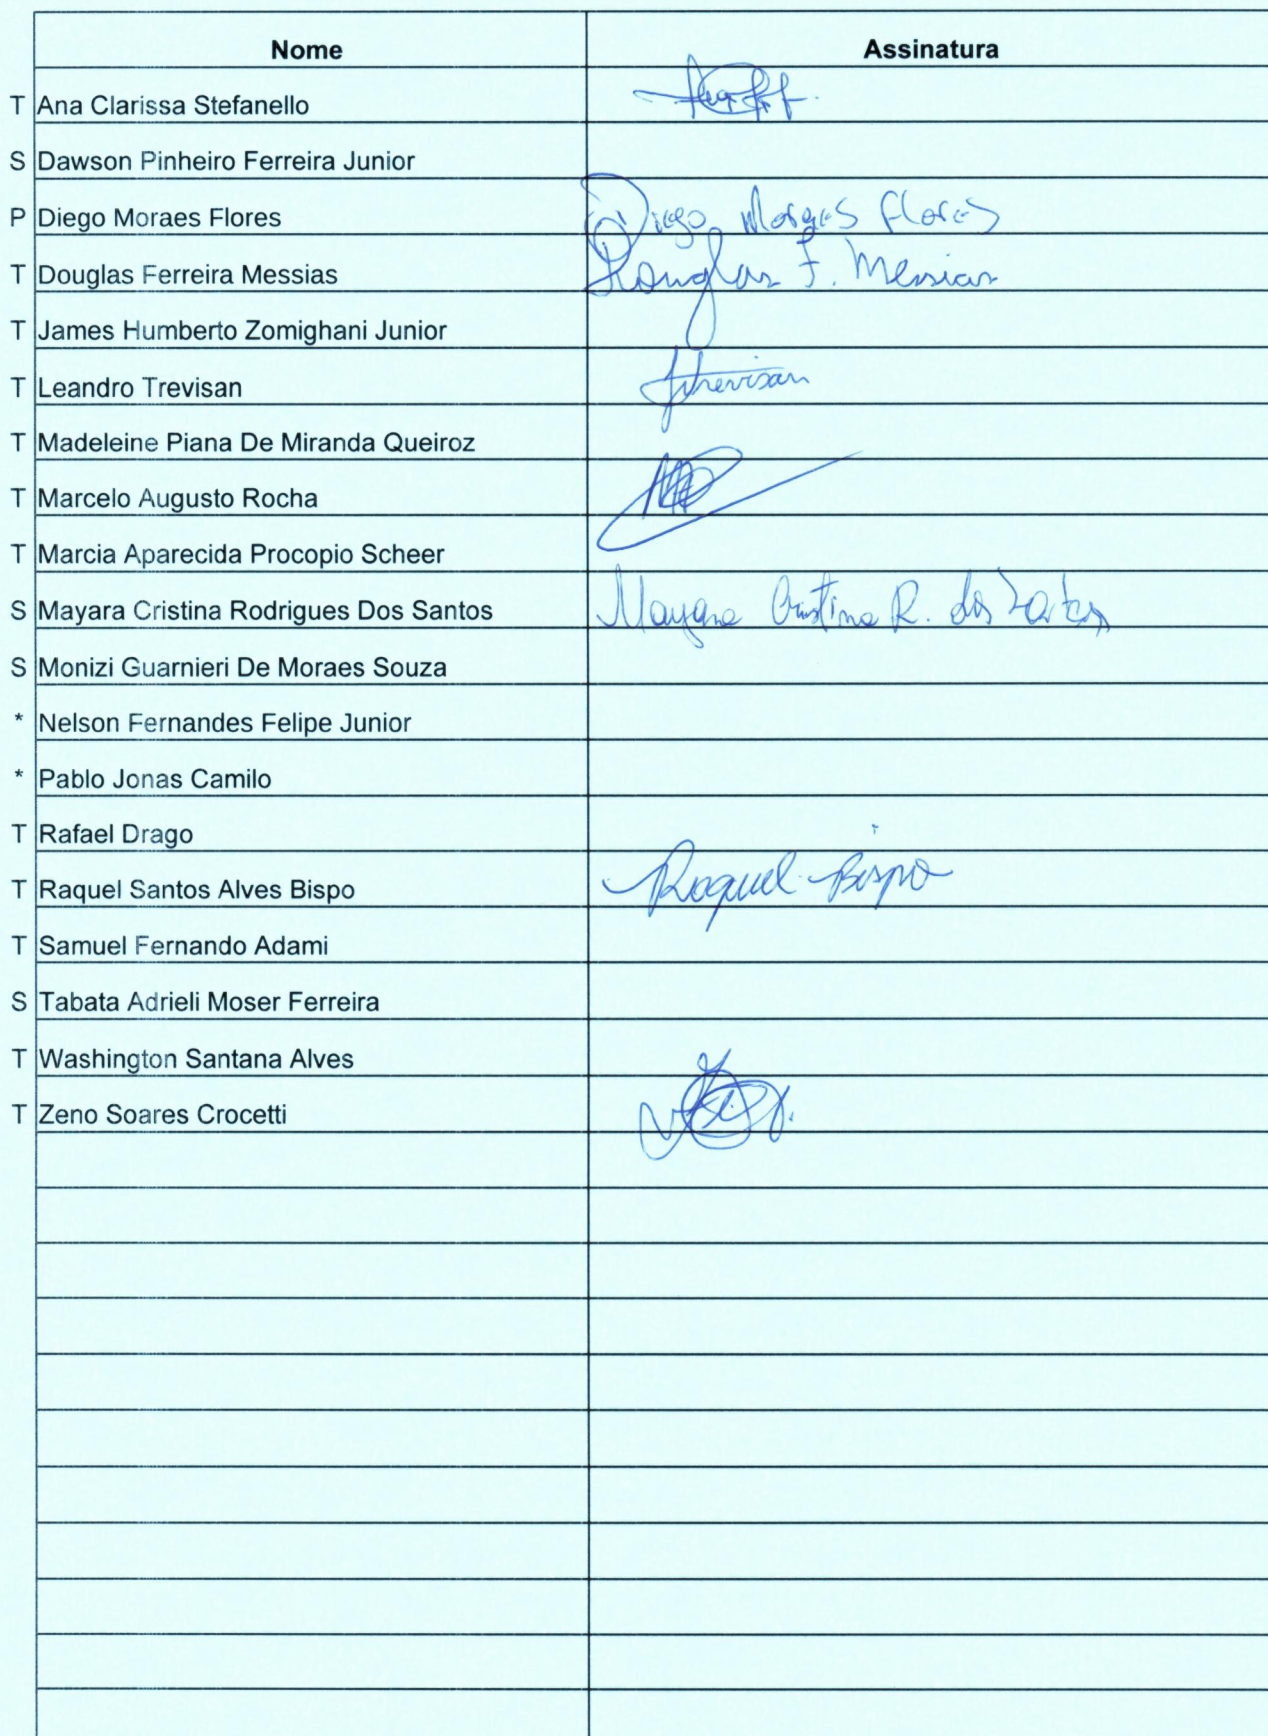 Nome Assinatura
T Ana Clarissa Stefanello
S Dawson Pinheiro Ferreira Junior
P Diego Moraes Flores Diego Moraes Flores
T Douglas Ferreira Messias Douglas F. Messias
T James Humberto Zomighani Junior
T Leandro Trevisan Trevisan
T Madeleine Piana De Miranda Queiroz
T Marcelo Augusto Rocha
T Marcia Aparecida Procopio Scheer
S Mayara Cristina Rodrigues Dos Santos Mayara Cristina R. dos Santos
S Monizi Guarnieri De Moraes Souza
* Nelson Fernandes Felipe Junior
* Pablo Jonas Camilo
T Rafael Drago
T Raquel Santos Alves Bispo Raquel Bispo
T Samuel Fernando Adami
S Tabata Adrieli Moser Ferreira
T Washington Santana Alves
T Zeno Soares Crocetti